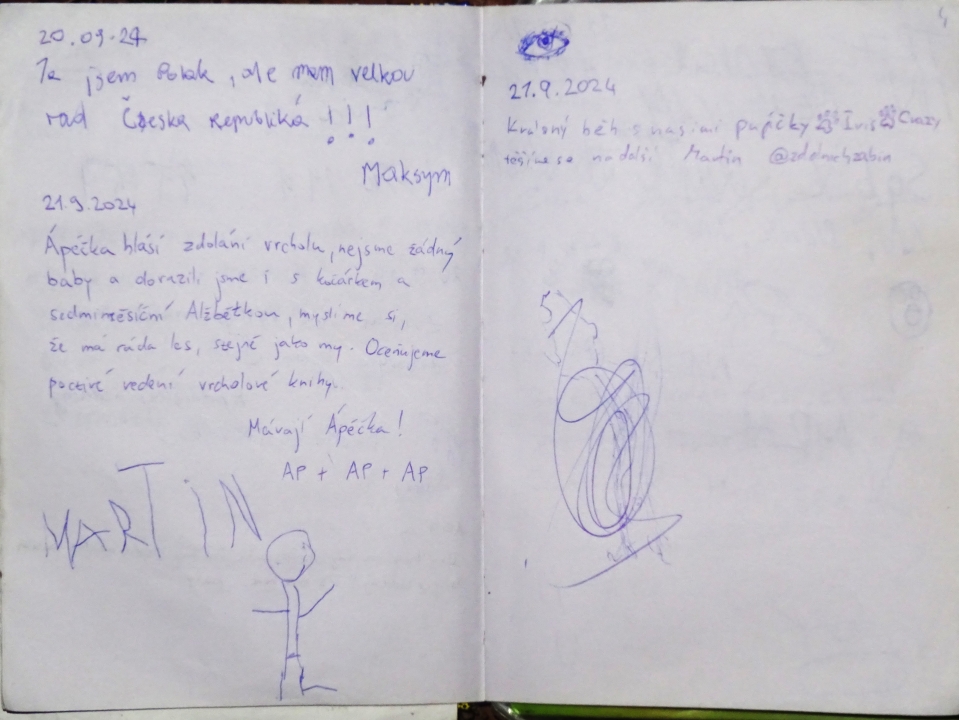 20.09.24
Ja jsem Polak, ale mam velkou
rad Česka republiká !!!
Maksym
21.9.2024
Ápéčka hlásí zdolání vrcholu, nejsme žádný
baby a dorazili jsme i s kočárkem a
sedmiměsíční Alžbětkou, myslíme si,
že má ráda les, stejně jako my. Oceňujeme
poctivé vedení vrcholové knihy.
Mávají Ápéčka!
AP + AP + AP
MARTIN
21.9.2024
Krásný běh s našimi pejsky Iris Crazy
těšíme se na další Martin